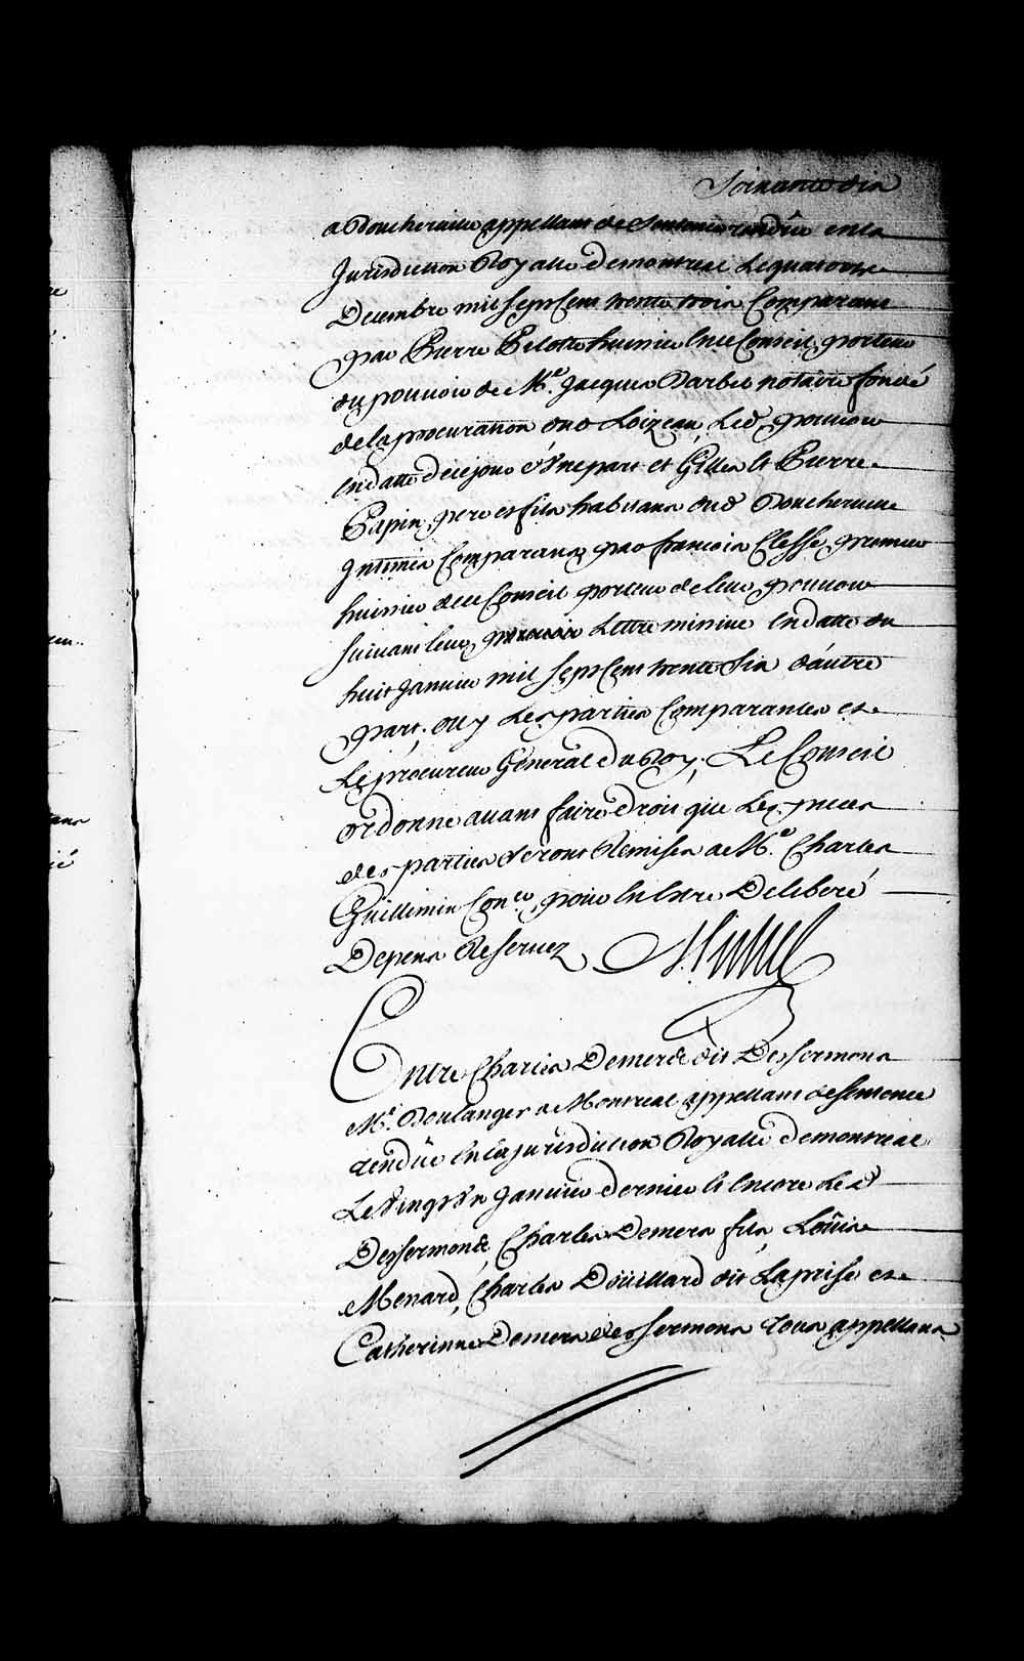 Soixante dix
a Boucherville appellant de Sentence rendüe en la
Jurisdiction Royalle de montreal Le quatorze
Decembre mil sept Cent trente trois Comparant
par Pierre Pelotte huissier en ce Conseil porteur
du pouvoir de Me. Jacques Barbel notaire fondé
de la procuration dud Loizeau, Led. pouvoir
en datte de ce jour d'Vne part et Gilles et Pierre
Papin pere et fils habitans dud Boucherville
Intimés Comparans par francois Clesse premier
huissier de ce Conseil porteur de leur pouvoir
suivant leur Lettre missive en datte du
huit Janvier mil sept Cent trente six d'autre
part. ouy Les parties Comparantes et
Le procureur General du Roy, Le Conseil
ordonne avant faire droit que Les pieces
des parties seront Remises a Me. Charles
Guillimin Coner. pour en Estre Deliberé
Depens Reservez
Entre Charles Demers dit Dessermons
Me. Boulanger a Montreal appellant de sentence
rendüe en la jurisdiction Royalle de montreal
Le Vingt Vn Janvier dernier et encore Led
Dessermons, Charles Demers fils, Loüise
Menard, Charles Doüillard dit Laprise et
Catherinne Demers dessermons tous appellans